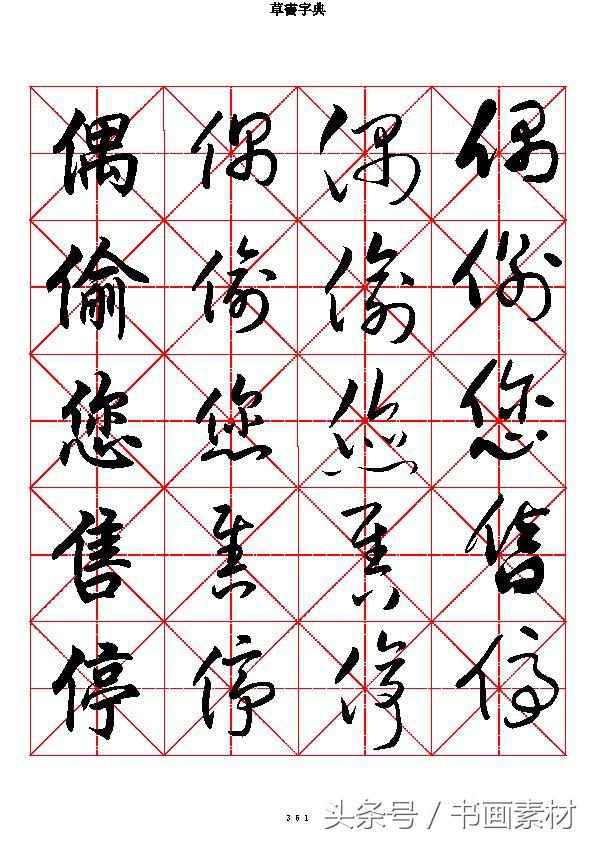 草書字典
偶 偶 偶 偶
偷 偷 偷 偷
您 您 您 您
售 售 售 售
停 停 停 停
361
头条号 / 书画素材